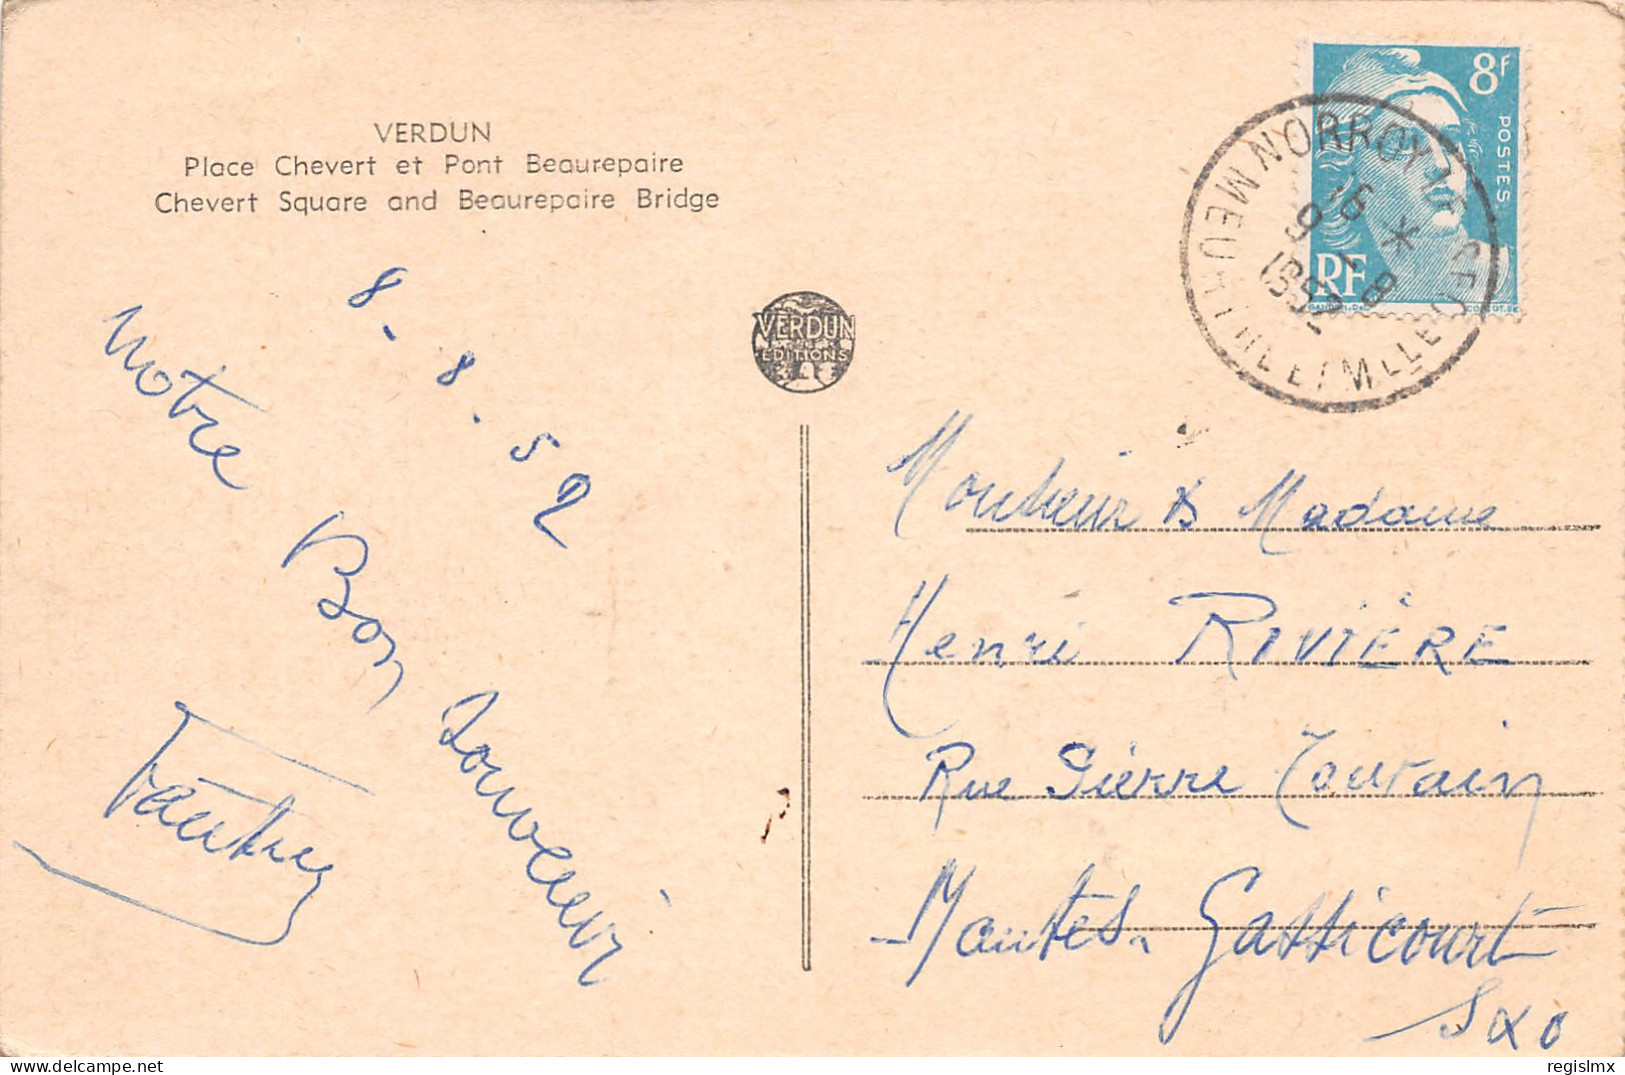 VERDUN
Place Chevert et Pont Beaurepaire
Chevert Square and Beaurepaire Bridge
8-8.52
Notre Bon Souvenir
VERDUN
EDITIONS
8F
POSTES
RF
NORROY LE SEC
MEURTHE ET MLLE
Monsieur & Madame
Henri RIVIÈRE
Rue Pierre Tourain
Mantes-Gassicourt
SXO
regislmx